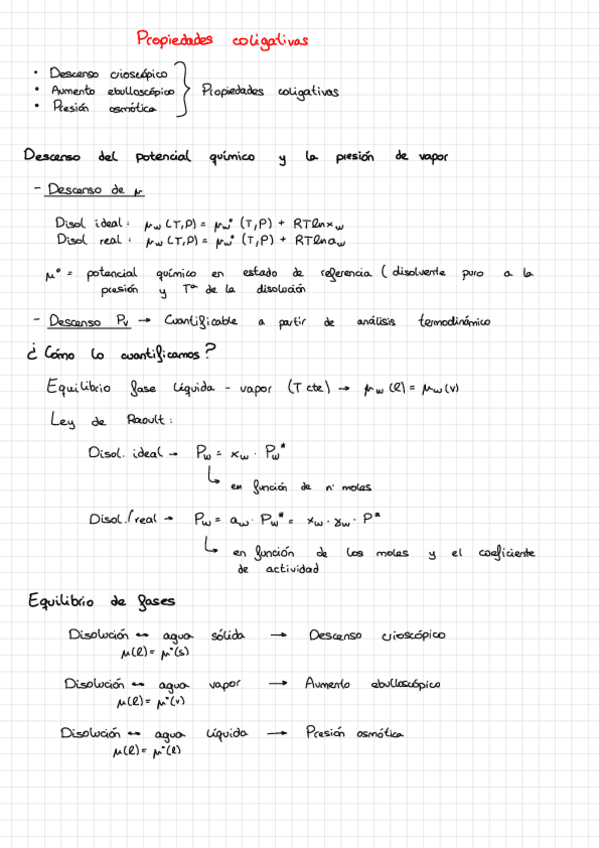 Propiedades coligativas
• Descenso crioscópico
• Aumento ebulloscópico } Propiedades coligativas
• Presión osmótica
Descenso del potencial químico y la presión de vapor
- Descenso de μ
Disol ideal: μw (T,P) = μw° (T,P) + RTlnxw
Disol real: μw (T,P) = μw° (T,P) + RTlnaw
μ° = potencial químico en estado de referencia (disolvente puro a la
presión y Tª de la disolución
- Descenso Pv → Cuantificable a partir de análisis termodinámico
¿Cómo lo cuantificamos?
Equilibrio fase líquida - vapor (T cte) → μw(l) = μw(v)
Ley de Raoult:
Disol. ideal → Pw = xw · Pw*
↳ en función de nº moles
Disol. real → Pw = aw · Pw* = xw · γw · P*
↳ en función de los moles y el coeficiente
de actividad
Equilibrio de fases
Disolución ↔ agua sólida → Descenso crioscópico
μ(l) = μ°(s)
Disolución ↔ agua vapor → Aumento ebulloscópico
μ(l) = μ°(v)
Disolución ↔ agua líquida → Presión osmótica
μ(l) = μ°(l)